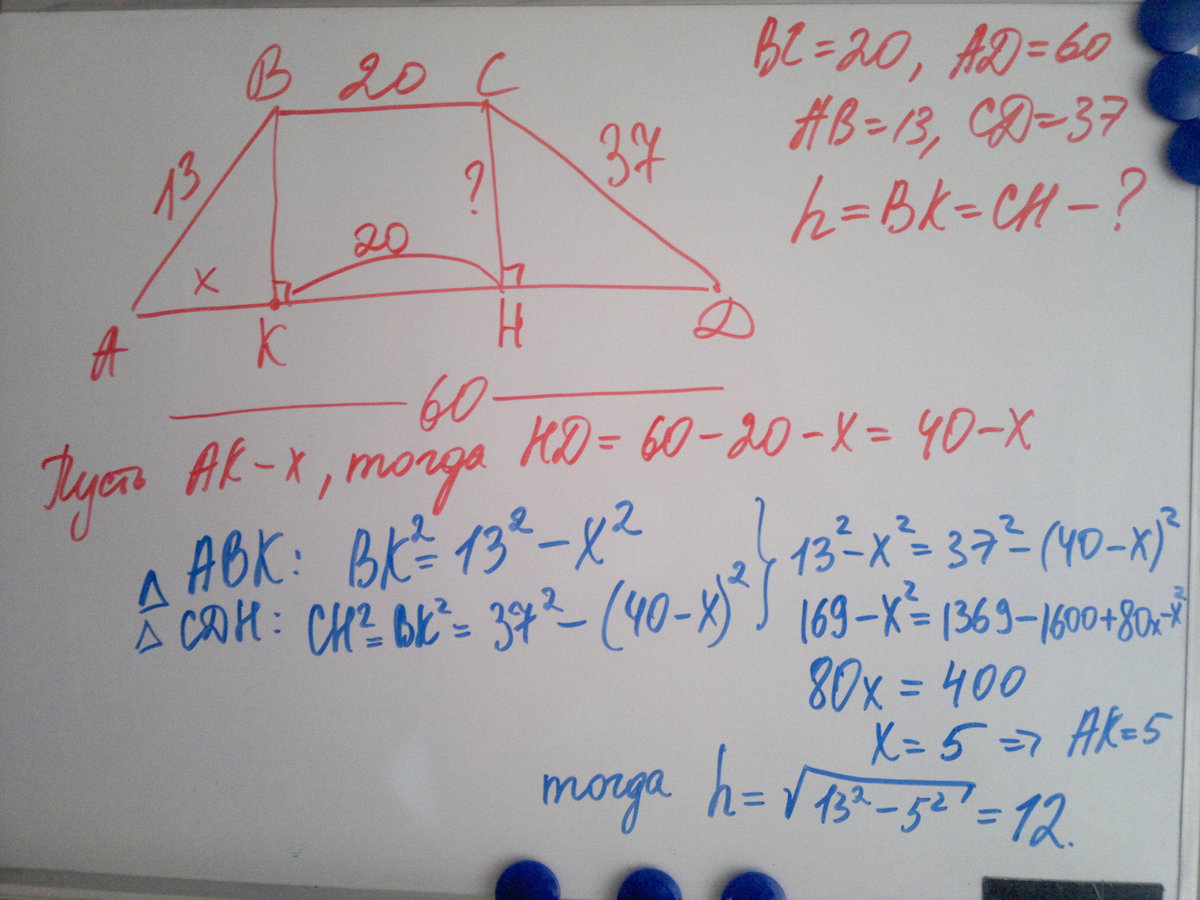 B 20 C
13
37
?
20
x
A K H D
60
BC=20, AD=60
AB=13, CD=37
h=BK=CH-?
Пусть AK-x, тогда HD=60-20-x=40-x
△ ABK: BK²=13²-x²
△ CDH: CH²=BK²=37²-(40-x)²
13²-x²=37²-(40-x)²
169-x²=1369-1600+80x-x²
80x=400
x=5 => AK=5
тогда h=√13²-5²=12.